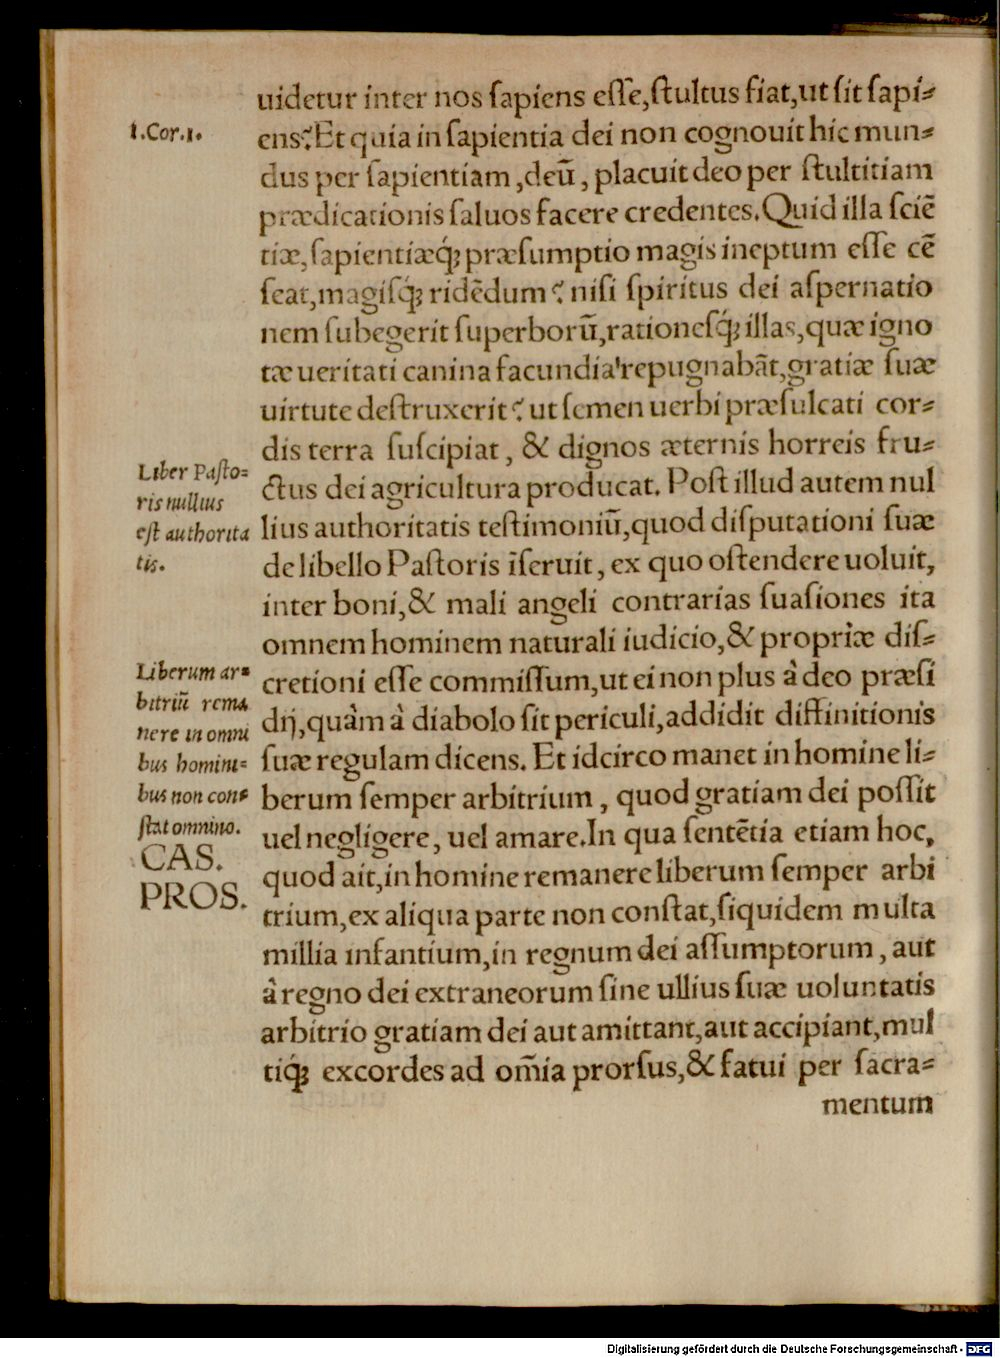 uidetur inter nos ſapiens eſſe,ſtultus fiat,ut ſit ſapi⸗
1.Cor.1.
ens?Et quia in ſapientia dei non cognouit hic mun⸗
dus per ſapientiam ,deū , placuit deo per ſtultitiam
prædicationis ſaluos facere credentes.Quid illa ſciē
tiæ,ſapientiæq́; præſumptio magis ineptum eſſe cē
ſeat,magiſq́; ridēdum? niſi ſpiritus dei aſpernatio
nem ſubegerit ſuperborū,rationeſq́; illas,quæ igno
tæ ueritati canina facundia repugnabāt,gratiæ ſuæ
uirtute deſtruxerit? ut ſemen uerbi præſulcati cor⸗
dis terra ſuſcipiat , & dignos æternis horreis fru⸗
ctus dei agricultura producat. Poſt illud autem nul
lius authoritatis teſtimoniū,quod diſputationi ſuæ
de libello Paſtoris īſeruit , ex quo oſtendere uoluit,
inter boni,& mali angeli contrarias ſuaſiones ita
omnem hominem naturali iudicio,& propriæ diſ⸗
cretioni eſſe commiſſum,ut ei non plus à deo præſi
dij,quàm à diabolo ſit periculi,addidit diffinitionis
ſuæ regulam dicens. Et idcirco manet in homine li⸗
berum ſemper arbitrium , quod gratiam dei poſſit
uel negligere, uel amare.In qua ſentētia etiam hoc,
quod ait,in homine remanere liberum ſemper arbi
trium,ex aliqua parte non conſtat,ſiquidem multa
millia infantium,in regnum dei aſſumptorum , aut
à regno dei extraneorum ſine ullius ſuæ uoluntatis
arbitrio gratiam dei aut amittant,aut accipiant,mul
tiq́; excordes ad om̄ia prorſus,& fatui per ſacra⸗
mentum
Liber Paſto⸗
ris nullius
eſt authorita
tis.
Liberum ar⸗
bitriū rema
nere in omni
bus homini⸗
bus non con⸗
ſtat omnino.
CAS.
PROS.
Digitalisierung gefördert durch die Deutsche Forschungsgemeinschaft - DFG